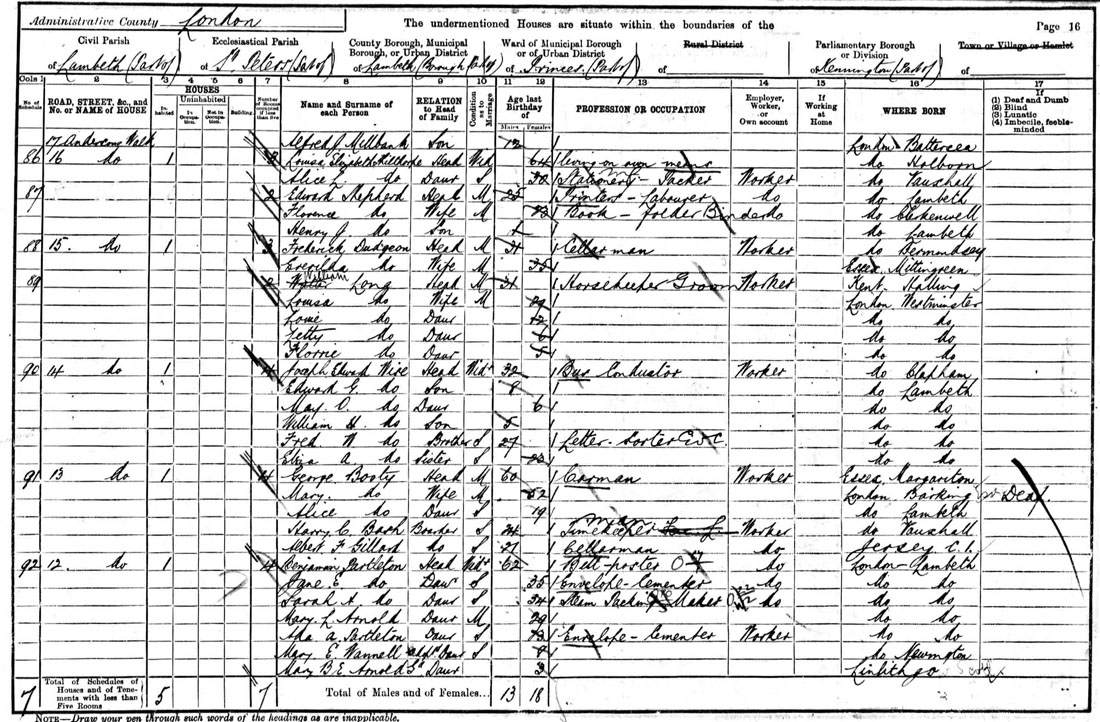 Administrative County London
The undermentioned Houses are situate within the boundaries of the
Page 16
Civil Parish
of Lambeth (Part of)
Ecclesiastical Parish
of St Peters (Part of)
County Borough, Municipal Borough, or Urban District
of Lambeth (Borough Part of)
Ward of Municipal Borough or of Urban District
of Princes (Part of)
Rural District
of
Parliamentary Borough or Division
of Kennington (Part of)
Town or Village or Hamlet
of
Cols 1 2 3 4 5 6 7 8 9 10 11 12 13 14 15 16 17
No. of Schedule
ROAD, STREET, &c., and No. or NAME of HOUSE
HOUSES
Inhabited
Uninhabited
In Occupation
Not in Occupation
Building
Number of Rooms occupied if less than five
Name and Surname of each Person
RELATION to Head of Family
Condition as to Marriage
Age last Birthday of
Males Females
PROFESSION OR OCCUPATION
Employer, Worker, or Own account
If Working at Home
WHERE BORN
If
(1) Deaf and Dumb
(2) Blind
(3) Lunatic
(4) Imbecile, feeble-minded
17 Walk Alfred J Millbank Son 12 London Battersea
86 16 do 1 Louisa Elizabeth Head Wid 64 living on own means do Holborn
Alice do Daur S 30 Stationery Packer Worker do Vauxhall
87 2 Edward Shepherd Head M 25 Printers - Labourer do do Lambeth
Florence do Wife M 23 Book - folder do do Clerkenwell
Henry J. do Son 1 do Lambeth
88 15. do 1 3 Frederick Dudgeon Head M 31 Cellarman Worker do Bermondsey
Everilda do Wife M 35 Essex
89 2 William Long Head M 31 Horsekeeper Groom Worker Kent Halling
Louisa do Wife M 29 London Westminster
Louie do Daur 12 do do
Letty do Daur 6 do do
Florrie do Daur 5 do do
90 14 do 1 4 Joseph Edward Wise Head Widr 32 Bus Conductor Worker do Clapham
Edward G. do Son 8 do Lambeth
May O. do Daur 6 do do
William H. do Son 5 do do
Fred W do Brother S 27 Letter-Sorter do do
Eliza A do Sister S 23 do do
91 13 do 1 4 George Booty Head M 60 Carman Worker Essex
Mary. do Wife M 52 London Barking Deaf.
Alice do Daur S 19 do Lambeth
Harry C. Bach Boarder S 24 Timekeeper Worker do Vauxhall
Albert F Gillard do S 47 Cellarman do Jersey C.I.
92 12 do 1 4 Benjamin Partleton Head Widr 62 Bill-poster do London Lambeth
Jane E do Daur S 35 Envelope-Cementer do do do
Sarah A do Daur S 34 Steam Packing Maker do do do
Mary L Arnold Daur M 29 do do
Ada A. Partleton Daur S 23 Envelope-Cementer Worker do do
Mary E. Wannell adptd Daur S 8 do Newington
Mary B.E. Arnold Gd Daur 3 Linlithgo
7 Total of Schedules of Houses and of Tenements with less than Five Rooms 5 7 Total of Males and of Females... 13 18
NOTE—Draw your pen through such words of the headings as are inapplicable.